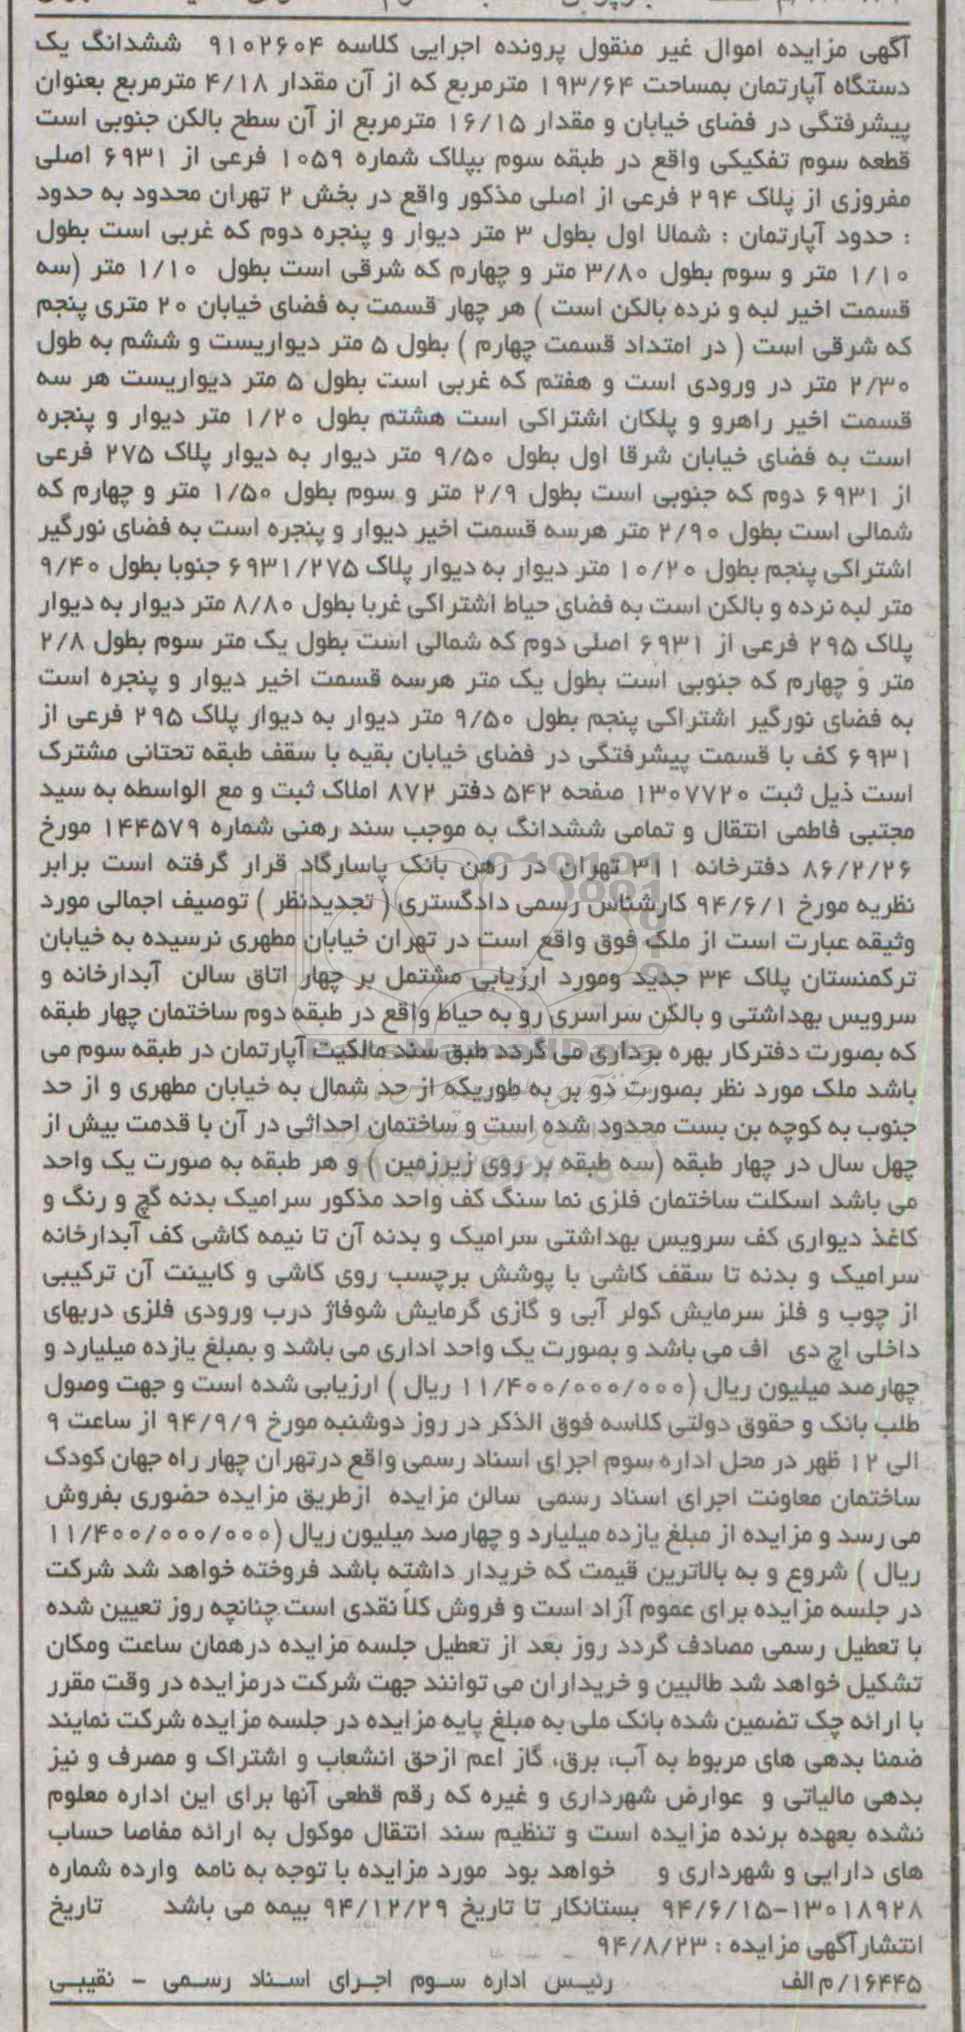 آگهی مزایده اموال غیر منقول پرونده اجرایی کلاسه ۹۱۰۲۶۰۴ ششدانگ یک
دستگاه آپارتمان بمساحت ۱۹۳/۶۴ مترمربع که از آن مقدار ۴/۱۸ مترمربع بعنوان
پیشرفتگی در فضای خیابان و مقدار ۱۶/۱۵ مترمربع از آن سطح بالکن جنوبی است
قطعه سوم تفکیکی واقع در طبقه سوم بپلاک شماره ۱۰۵۹ فرعی از ۶۹۳۱ اصلی
مفروزی از پلاک ۲۹۴ فرعی از اصلی مذکور واقع در بخش ۲ تهران محدود به حدود
: حدود آپارتمان : شمالا اول بطول ۳ متر دیوار و پنجره دوم که غربی است بطول
۱/۱۰ متر و سوم بطول ۳/۸۰ متر و چهارم که شرقی است بطول ۱/۱۰ متر (سه
قسمت اخیر لبه و نرده بالکن است ) هر چهار قسمت به فضای خیابان ۲۰ متری پنجم
که شرقی است ( در امتداد قسمت چهارم ) بطول ۵ متر دیواریست و ششم به طول
۲/۳۰ متر در ورودی است و هفتم که غربی است بطول ۵ متر دیواریست هر سه
قسمت اخیر راهرو و پلکان اشتراکی است هشتم بطول ۱/۲۰ متر دیوار و پنجره
است به فضای خیابان شرقا اول بطول ۹/۵۰ متر دیوار به دیوار پلاک ۲۷۵ فرعی
از ۶۹۳۱ دوم که جنوبی است بطول ۲/۹ متر و سوم بطول ۱/۵۰ متر و چهارم که
شمالی است بطول ۲/۹۰ متر هرسه قسمت اخیر دیوار و پنجره است به فضای نورگیر
اشتراکی پنجم بطول ۱۰/۲۰ متر دیوار به دیوار پلاک ۶۹۳۱/۲۷۵ جنوبا بطول ۹/۴۰
متر لبه نرده و بالکن است به فضای حیاط اشتراکی غربا بطول ۸/۸۰ متر دیوار به دیوار
پلاک ۲۹۵ فرعی از ۶۹۳۱ اصلی دوم که شمالی است بطول یک متر سوم بطول ۲/۸
متر و چهارم که جنوبی است بطول یک متر هرسه قسمت اخیر دیوار و پنجره است
به فضای نورگیر اشتراکی پنجم بطول ۹/۵۰ متر دیوار به دیوار پلاک ۲۹۵ فرعی از
۶۹۳۱ کف با قسمت پیشرفتگی در فضای خیابان بقیه با سقف طبقه تحتانی مشترک
است ذیل ثبت ۱۳۰۷۷۲۰ صفحه ۵۴۲ دفتر ۸۷۲ املاک ثبت و مع الواسطه به سید
مجتبی فاطمی انتقال و تمامی ششدانگ به موجب سند رهنی شماره ۱۴۴۵۷۹ مورخ
۸۶/۲/۲۶ دفترخانه ۳۱۱ تهران در رهن بانک پاسارگاد قرار گرفته است برابر
نظریه مورخ ۹۴/۶/۱ کارشناس رسمی دادگستری ( تجدیدنظر ) توصیف اجمالی مورد
وثیقه عبارت است از ملک فوق واقع است در تهران خیابان مطهری نرسیده به خیابان
ترکمنستان پلاک ۳۴ جدید ومورد ارزیابی مشتمل بر چهار اتاق سالن آبدارخانه و
سرویس بهداشتی و بالکن سراسری رو به حیاط واقع در طبقه دوم ساختمان چهار طبقه
که بصورت دفترکار بهره برداری می گردد طبق سند مالکیت آپارتمان در طبقه سوم می
باشد ملک مورد نظر بصورت دو بر به طوریکه از حد شمال به خیابان مطهری و از حد
جنوب به کوچه بن بست محدود شده است و ساختمان احداثی در آن با قدمت بیش از
چهل سال در چهار طبقه (سه طبقه بر روی زیرزمین ) و هر طبقه به صورت یک واحد
می باشد اسکلت ساختمان فلزی نما سنگ کف واحد مذکور سرامیک بدنه گچ و رنگ و
کاغذ دیواری کف سرویس بهداشتی سرامیک و بدنه آن تا نیمه کاشی کف آبدارخانه
سرامیک و بدنه تا سقف کاشی با پوشش برچسب روی کاشی و کابینت آن ترکیبی
از چوب و فلز سرمایش کولر آبی و گازی گرمایش شوفاژ درب ورودی فلزی دربهای
داخلی اچ دی اف می باشد و بصورت یک واحد اداری می باشد و بمبلغ یازده میلیارد و
چهارصد میلیون ریال (۱۱/۴۰۰/۰۰۰/۰۰۰ ریال ) ارزیابی شده است و جهت وصول
طلب بانک و حقوق دولتی کلاسه فوق الذکر در روز دوشنبه مورخ ۹۴/۹/۹ از ساعت ۹
الی ۱۲ ظهر در محل اداره سوم اجرای اسناد رسمی واقع درتهران چهار راه جهان کودک
ساختمان معاونت اجرای اسناد رسمی سالن مزایده ازطریق مزایده حضوری بفروش
می رسد و مزایده از مبلغ یازده میلیارد و چهارصد میلیون ریال (۱۱/۴۰۰/۰۰۰/۰۰۰
ریال ) شروع و به بالاترین قیمت که خریدار داشته باشد فروخته خواهد شد شرکت
در جلسه مزایده برای عموم آزاد است و فروش کلا نقدی است چنانچه روز تعیین شده
با تعطیل رسمی مصادف گردد روز بعد از تعطیل جلسه مزایده درهمان ساعت ومکان
تشکیل خواهد شد طالبین و خریداران می توانند جهت شرکت درمزایده در وقت مقرر
با ارائه چک تضمین شده بانک ملی به مبلغ پایه مزایده در جلسه مزایده شرکت نمایند
ضمنا بدهی های مربوط به آب، برق، گاز اعم ازحق انشعاب و اشتراک و مصرف و نیز
بدهی مالیاتی و عوارض شهرداری و غیره که رقم قطعی آنها برای این اداره معلوم
نشده بعهده برنده مزایده است و تنظیم سند انتقال موکول به ارائه مفاصا حساب
های دارایی و شهرداری و خواهد بود مورد مزایده با توجه به نامه وارده شماره
۱۳۰۱۸۹۲۸-۹۴/۶/۱۵ بستانکار تا تاریخ ۹۴/۱۲/۲۹ بیمه می باشد تاریخ
انتشارآگهی مزایده : ۹۴/۸/۲۳
۱۶۴۴۵/م الف رئیس اداره سوم اجرای اسناد رسمی - نقیبی